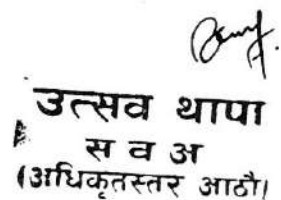 उत्सव थापा
स व अ
(अधिकृतस्तर आठौ)